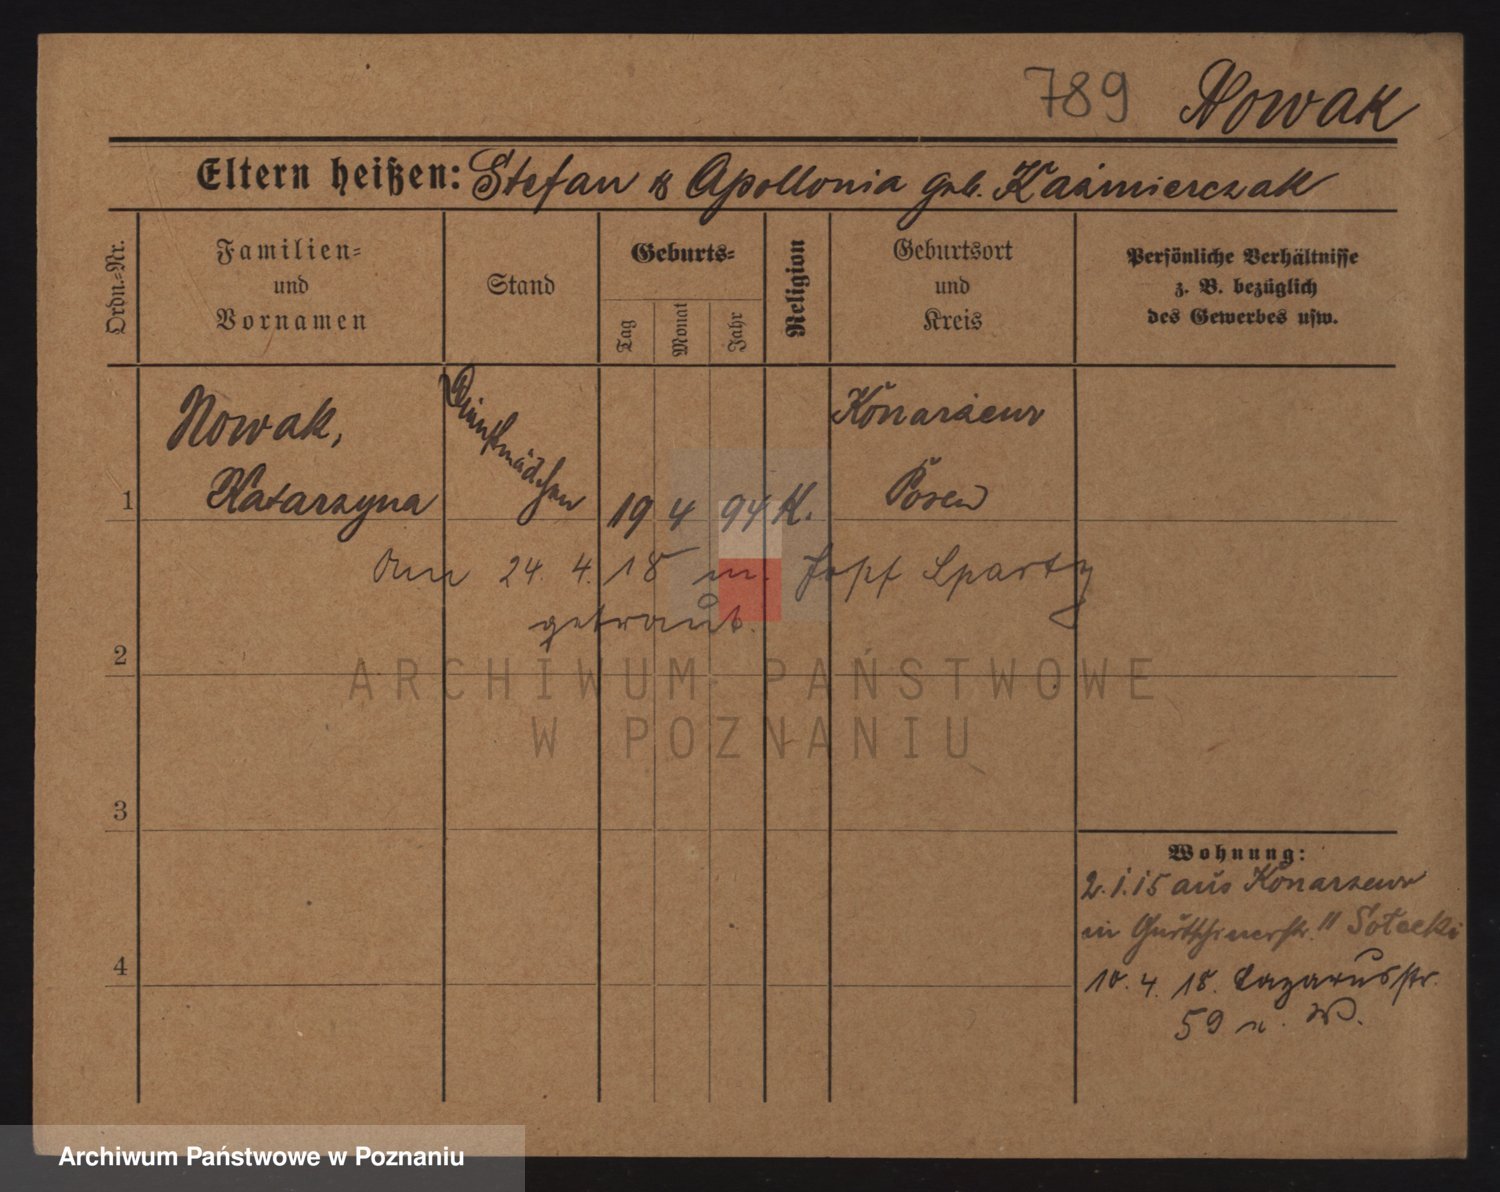 789 Nowak
Eltern heißen: Stefan & Apollonia geb. Kaźmierczak
Ordn.-Nr.
Familien-
und
Vornamen
Stand
Geburts-
Tag
Monat
Jahr
Religion
Geburtsort
und
Kreis
Persönliche Verhältnisse
z. B. bezüglich
des Gewerbes usw.
1 Nowak,
Katarzyna
Dienstmädchen
19 4 94 K.
Konarzew
Posen
Am 24. 4. 18 m. Josef Sparty
getraut.
2
3
4
Wohnung:
2. 1. 15 aus Konarzew
in Gurtschinerstr. 11 Sołecki
10. 4. 18. Lazarusstr.
59
ARCHIWUM PAŃSTWOWE
W POZNANIU
Archiwum Państwowe w Poznaniu